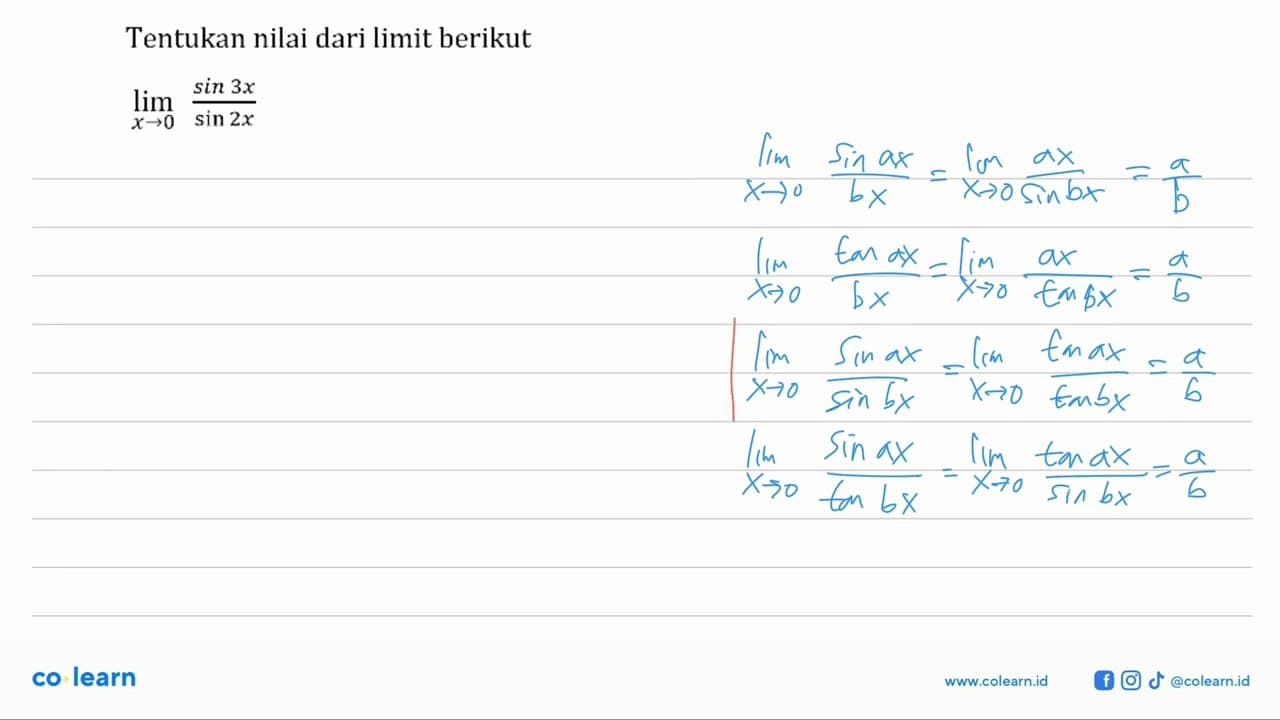 Tentukan nilai dari limit berikut
lim x→0 sin 3x / sin 2x
lim x→0 sin ax / bx = lim x→0 ax / sin bx = a / b
lim x→0 tan ax / bx = lim x→0 ax / tan bx = a / b
lim x→0 sin ax / sin bx = lim x→0 tan ax / tan bx = a / b
lim x→0 sin ax / tan bx = lim x→0 tan ax / sin bx = a / b
co learn
www.colearn.id
@colearn.id